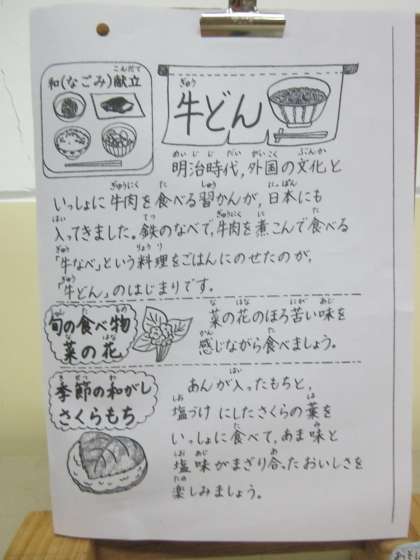 和(なごみ)献立
牛どん
明治時代,外国の文化と
いっしょに牛肉を食べる習かんが,日本にも
入ってきました。鉄のなべで,牛肉を煮こんで食べる
「牛なべ」という料理をごはんにのせたのが,
「牛どん」のはじまりです。
旬の食べ物
菜の花
菜の花のほろ苦い味を
感じながら食べましょう。
季節の和がし
さくらもち
あんが入ったもちと,
塩づけにしたさくらの葉を
いっしょに食べて,あま味と
塩味がまざり合ったおいしさを
楽しみましょう。